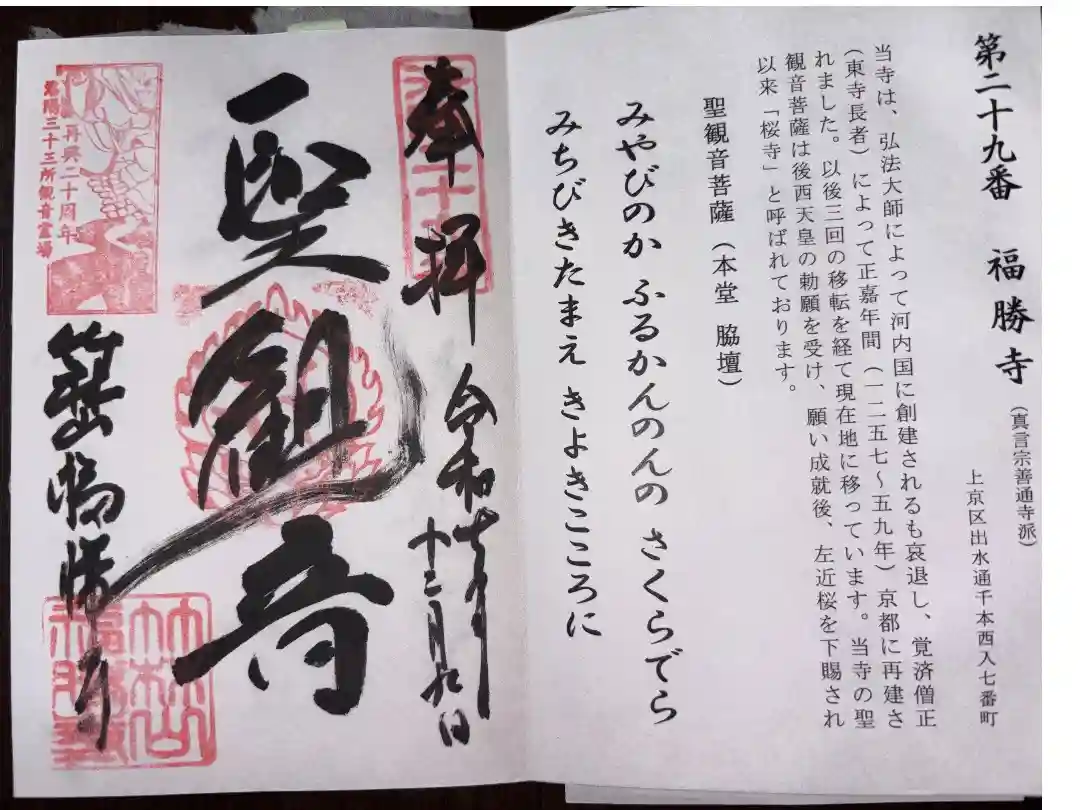 第二十九番　福勝寺
（真言宗善通寺派）
上京区出水通千本西入七番町
当寺は、弘法大師によって河内国に創建されるも哀退し、覚済僧正
（東寺長者）によって正嘉年間（一二五七～五九年）京都に再建さ
れました。以後三回の移転を経て現在地に移っています。当寺の聖
観音菩薩は後西天皇の勅願を受け、願い成就後、左近桜を下賜され
以来「桜寺」と呼ばれております。
聖観音菩薩（本堂　脇壇）
みやびのか ふるかんのんの さくらでら
みちびきたまえ きよきこころに
奉拝
令和七年
十二月九日
聖観音
再興二十周年
洛陽三十三所観音霊場
竹林山福勝寺